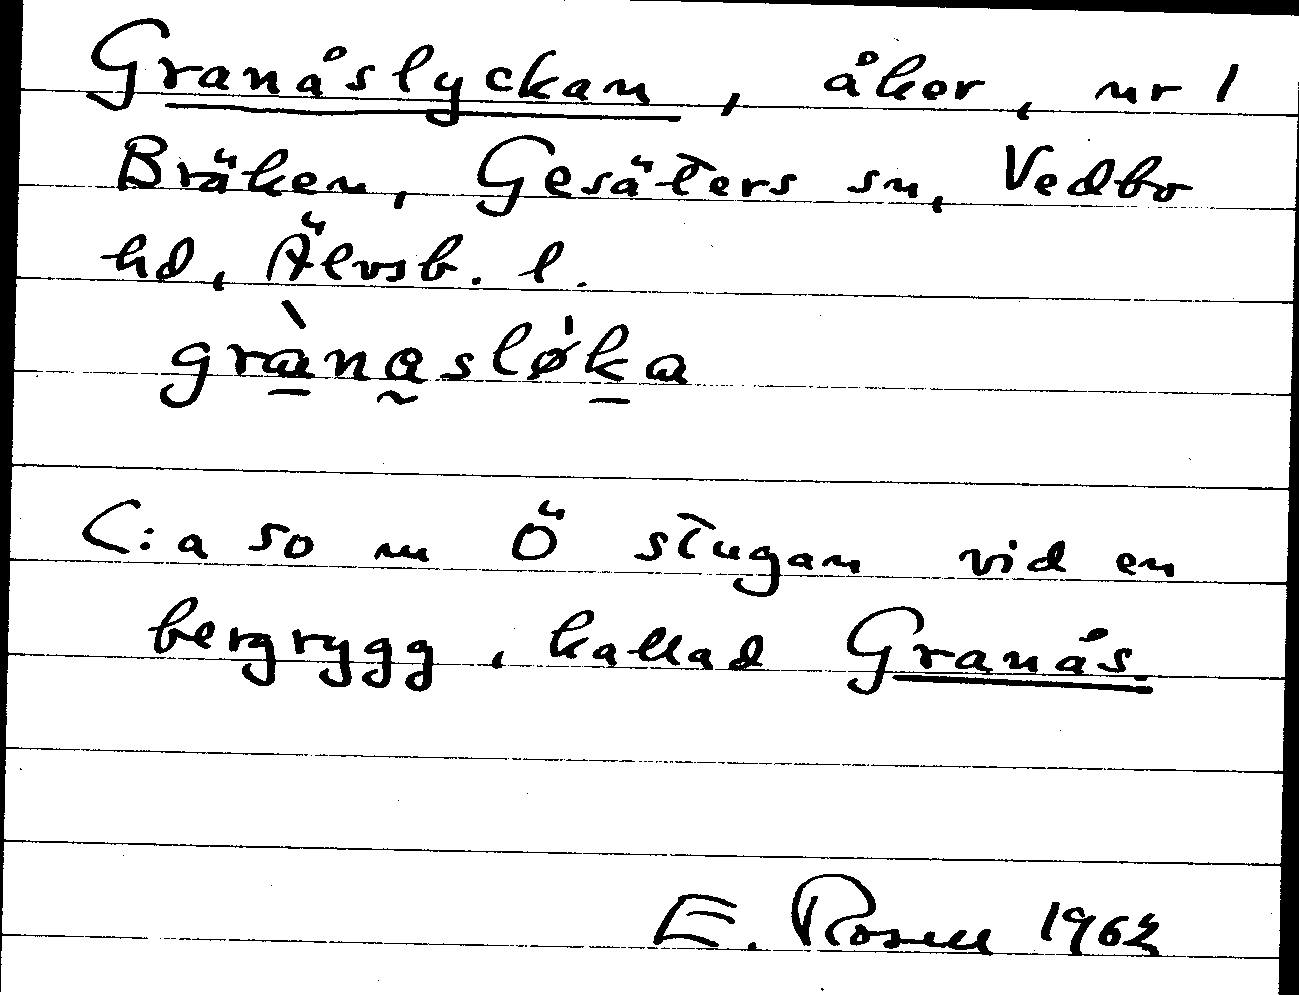 Granåslyckan, åker, nr 1
Bräken, Gesäters sn, Vedbo
hd, Älvsb. l.
grànaslø̍ka
C:a 50 m Ö stugan vid en
bergrygg, kallad Granås.
E. Rosell 1962